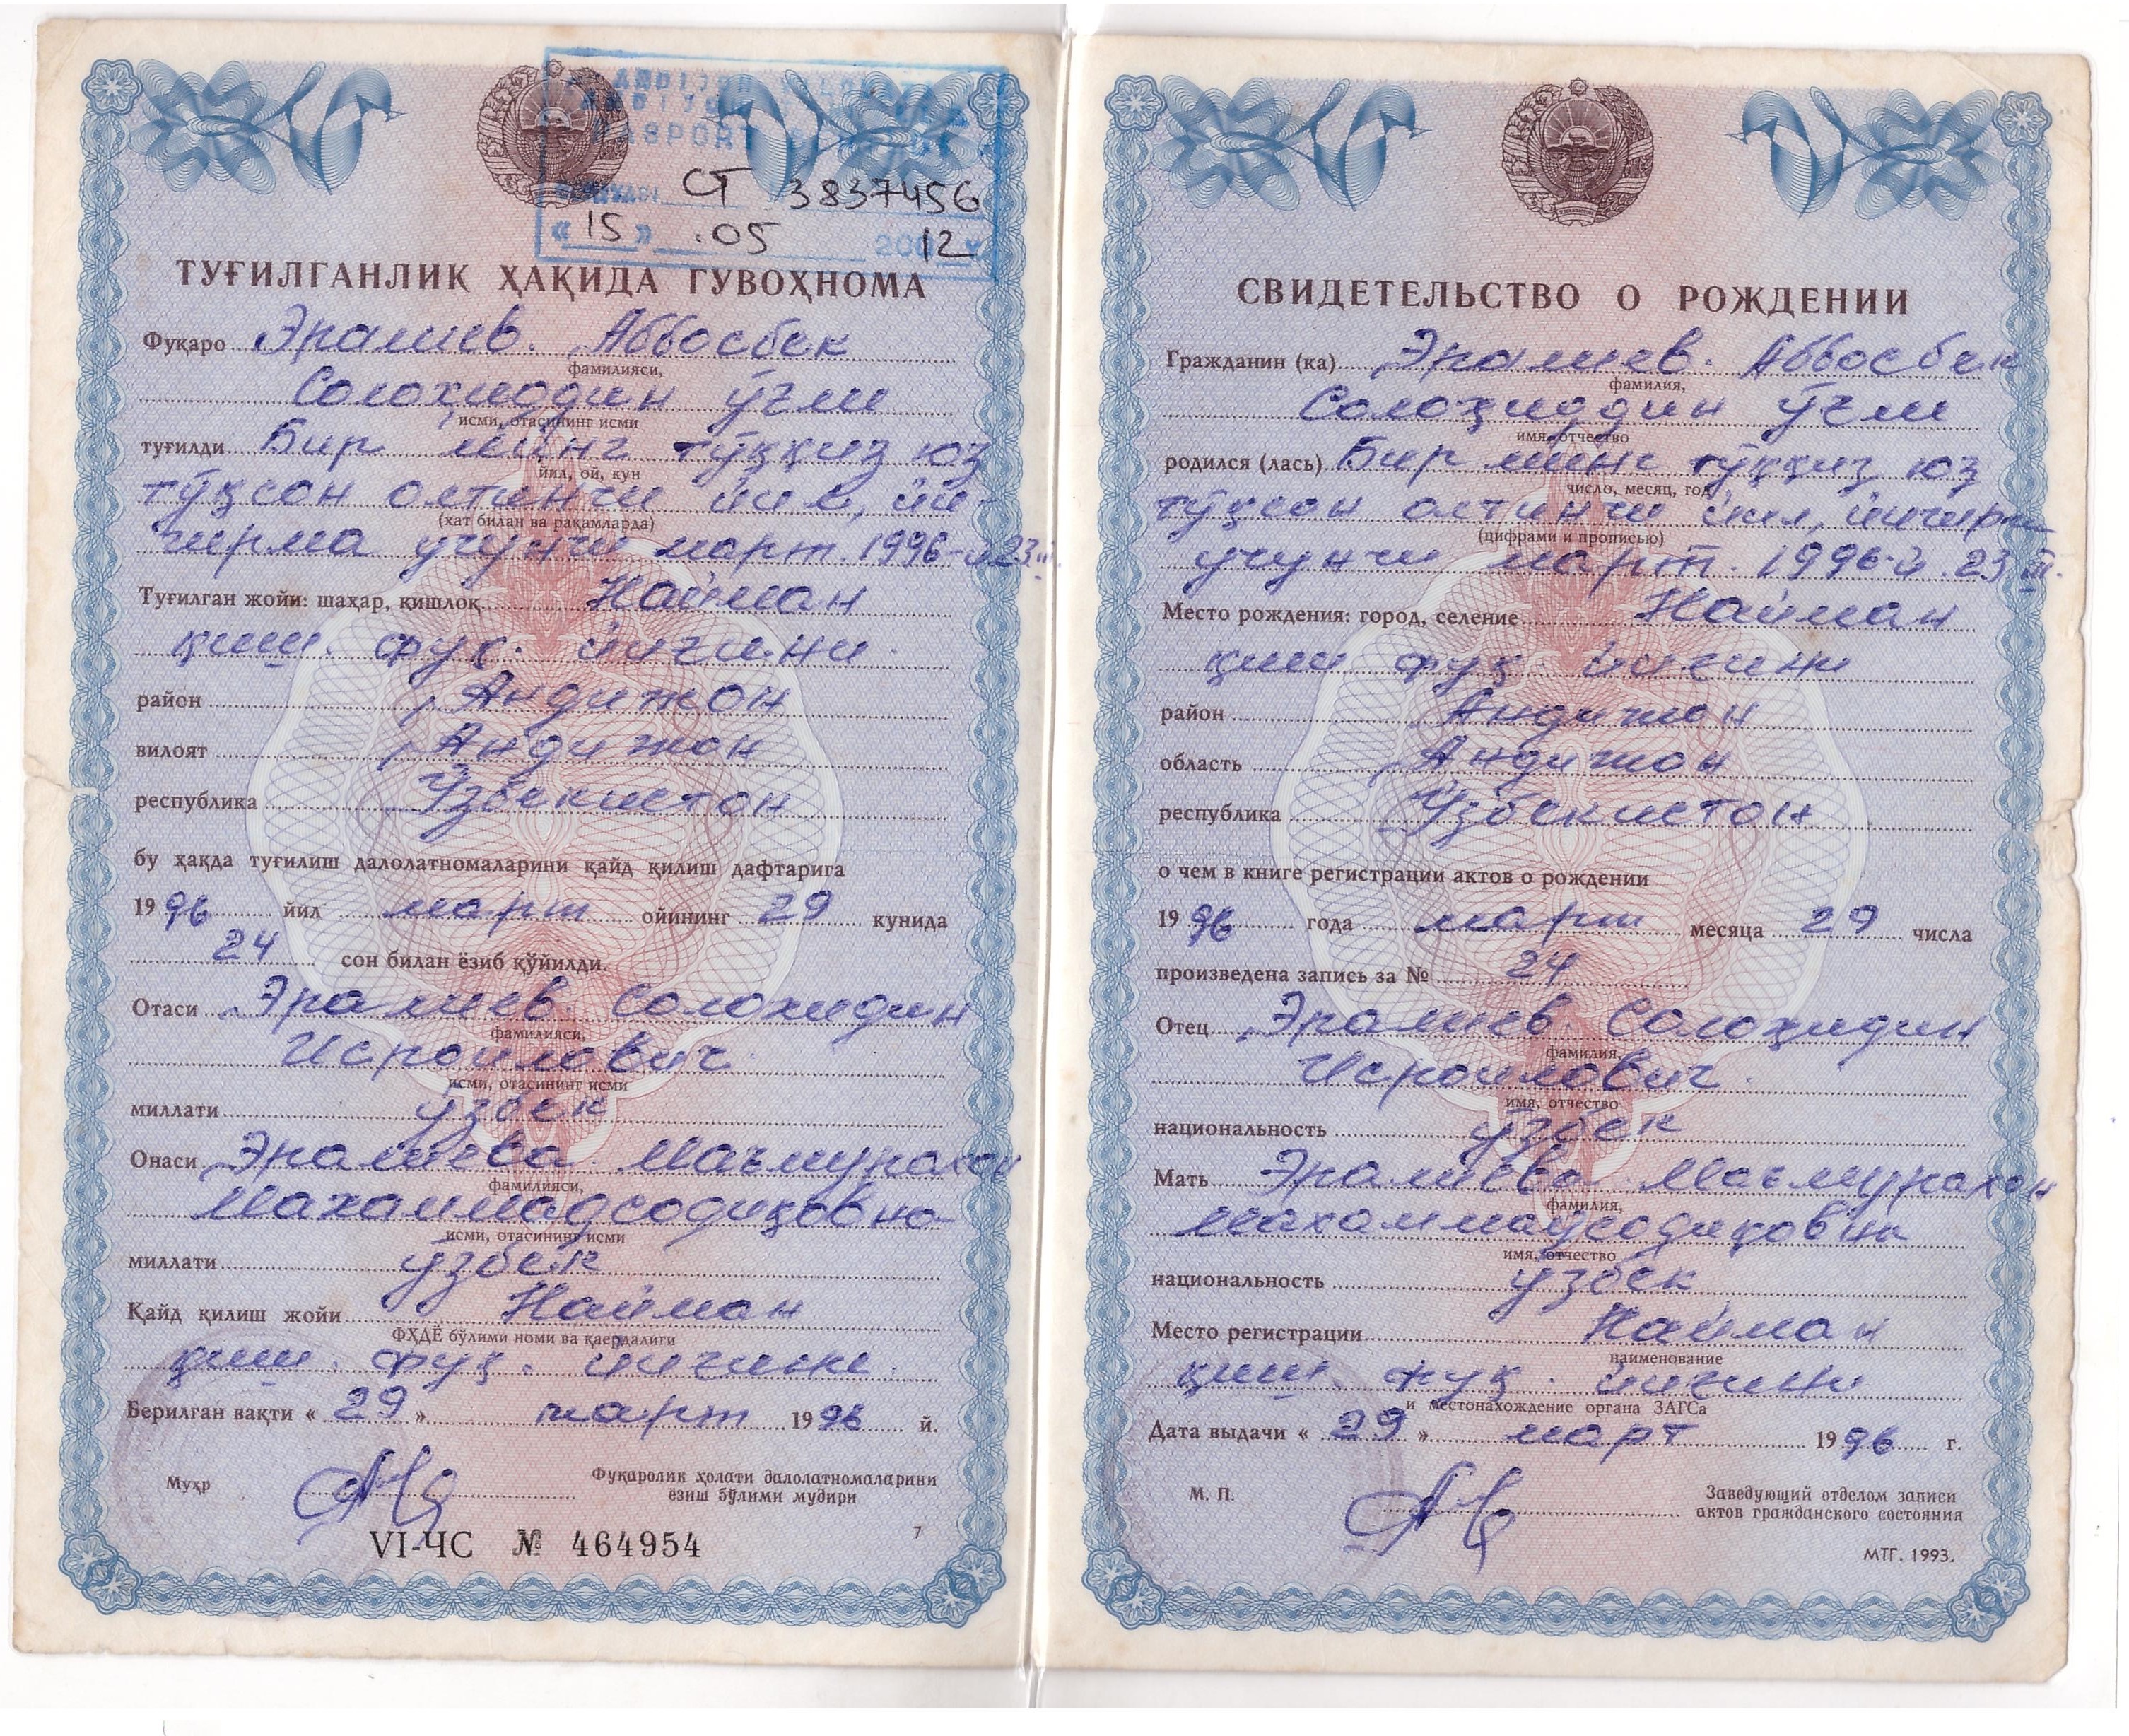 СТ 3837456
« 15 » .05 2012
ТУҒИЛГАНЛИК ҲАҚИДА ГУВОҲНОМА
Фуқаро Эралиев. Аббосбек
фамилияси,
Солоҳиддин ўғли
исми, отасининг исми
туғилди Бир минг тўққиз юз
йил, ой, кун
тўқсон олтинчи йил, йи
(хат билан ва рақамларда)
гирма учунчи март. 1996-й 23.
Туғилган жойи: шаҳар, қишлоқ Найман
қиш. фуқ. йиғини.
район Андижон
вилоят Андижон
республика Ўзбекистон
бу ҳақда туғилиш далолатномаларини қайд қилиш дафтарига
1996 йил март ойининг 29 кунида
24 сон билан ёзиб қўйилди.
Отаси Эралиев. Солохидин
фамилияси,
Исроилович.
исми, отасининг исми
миллати ўзбек
Онаси Эралиева. Маъмурахон
фамилияси,
Махаммадсодиқовна
исми, отасининг исми
миллати ўзбек
Қайд қилиш жойи Найман
ФҲДЁ бўлими номи ва қаердалиги
қиш. фуқ. йиғини.
Берилган вақти « 29 » март 1996 й.
Муҳр
Фуқаролик ҳолати далолатномаларини
ёзиш бўлими мудири
VI-ЧС № 464954
7
СВИДЕТЕЛЬСТВО О РОЖДЕНИИ
Гражданин (ка) Эралиев. Аббосбек
фамилия,
Солоҳиддин ўғли
имя, отчество
родился (лась) Бир минг тўққиз юз
число, месяц, год
тўқсон олтинчи йил, йигирма
(цифрами и прописью)
учунчи март. 1996-й. 23 III.
Место рождения: город, селение Найман
қиш фуқ. йиғини
район Андижон
область Андижон
республика Ўзбекистон
о чем в книге регистрации актов о рождении
1996 года март месяца 29 числа
произведена запись за № 24
Отец Эралиев. Солоҳидин
фамилия,
Исроилович.
имя, отчество
национальность ўзбек
Мать Эралиева. Маъмурахон
фамилия,
Махаммадсодиқовна
имя, отчество
национальность ўзбек
Место регистрации Найман
наименование
қиш. фуқ. йиғини
и местонахождение органа ЗАГСа
Дата выдачи « 29 » март 1996 г.
М. П.
Заведующий отделом записи
актов гражданского состояния
МТГ. 1993.